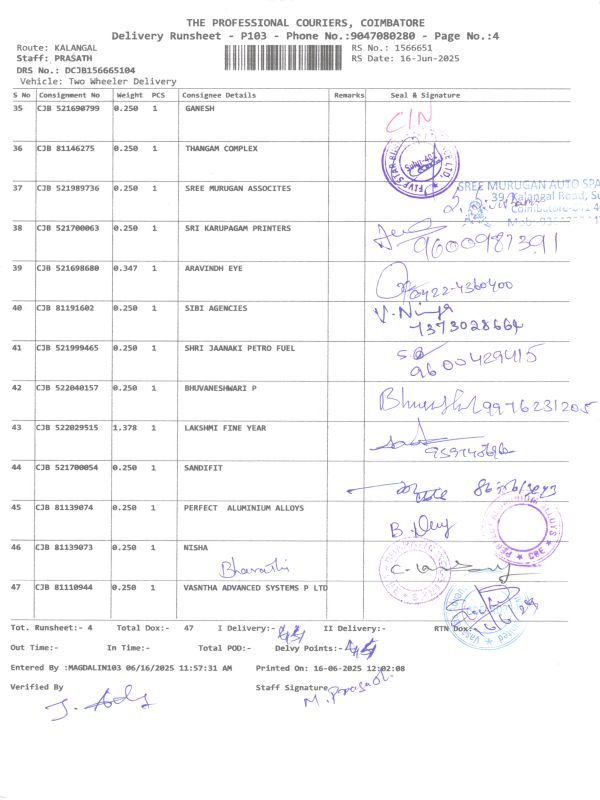 THE PROFESSIONAL COURIERS, COIMBATORE
Delivery Runsheet - P103 - Phone No.:9047080280 - Page No.:4
Route: KALANGAL RS No.: 1566651
Staff: PRASATH RS Date: 16-Jun-2025
DRS No.: DCJB156665104
Vehicle: Two Wheeler Delivery
S No Consignment No Weight PCS Consignee Details Remarks Seal & Signature
35 CJB 521690799 0.250 1 GANESH
36 CJB 81146275 0.250 1 THANGAM COMPLEX
37 CJB 521989736 0.250 1 SREE MURUGAN ASSOCITES SREE MURUGAN AUTO SPA
39, Kalangal Road, Su
38 CJB 521700063 0.250 1 SRI KARUPAGAM PRINTERS 9600987391
39 CJB 521698680 0.347 1 ARAVINDH EYE 0422-4360400
40 CJB 81191602 0.250 1 SIBI AGENCIES
7373028664
41 CJB 521999465 0.250 1 SHRI JAANAKI PETRO FUEL
9600429415
42 CJB 522040157 0.250 1 BHUVANESHWARI P 9976231205
43 CJB 522029515 1.378 1 LAKSHMI FINE YEAR
44 CJB 521700054 0.250 1 SANDIFIT
45 CJB 81139074 0.250 1 PERFECT ALUMINIUM ALLOYS
46 CJB 81139073 0.250 1 NISHA
Bharathi
47 CJB 81110944 0.250 1 VASNTHA ADVANCED SYSTEMS P LTD
Tot. Runsheet:- 4 Total Dox:- 47 I Delivery:- II Delivery:- RTN Dox:-
Out Time:- In Time:- Total POD:- Delvy Points:-
Entered By :MAGDALIN103 06/16/2025 11:57:31 AM Printed On: 16-06-2025 12:02:08
Verified By Staff Signature
M. Prasath